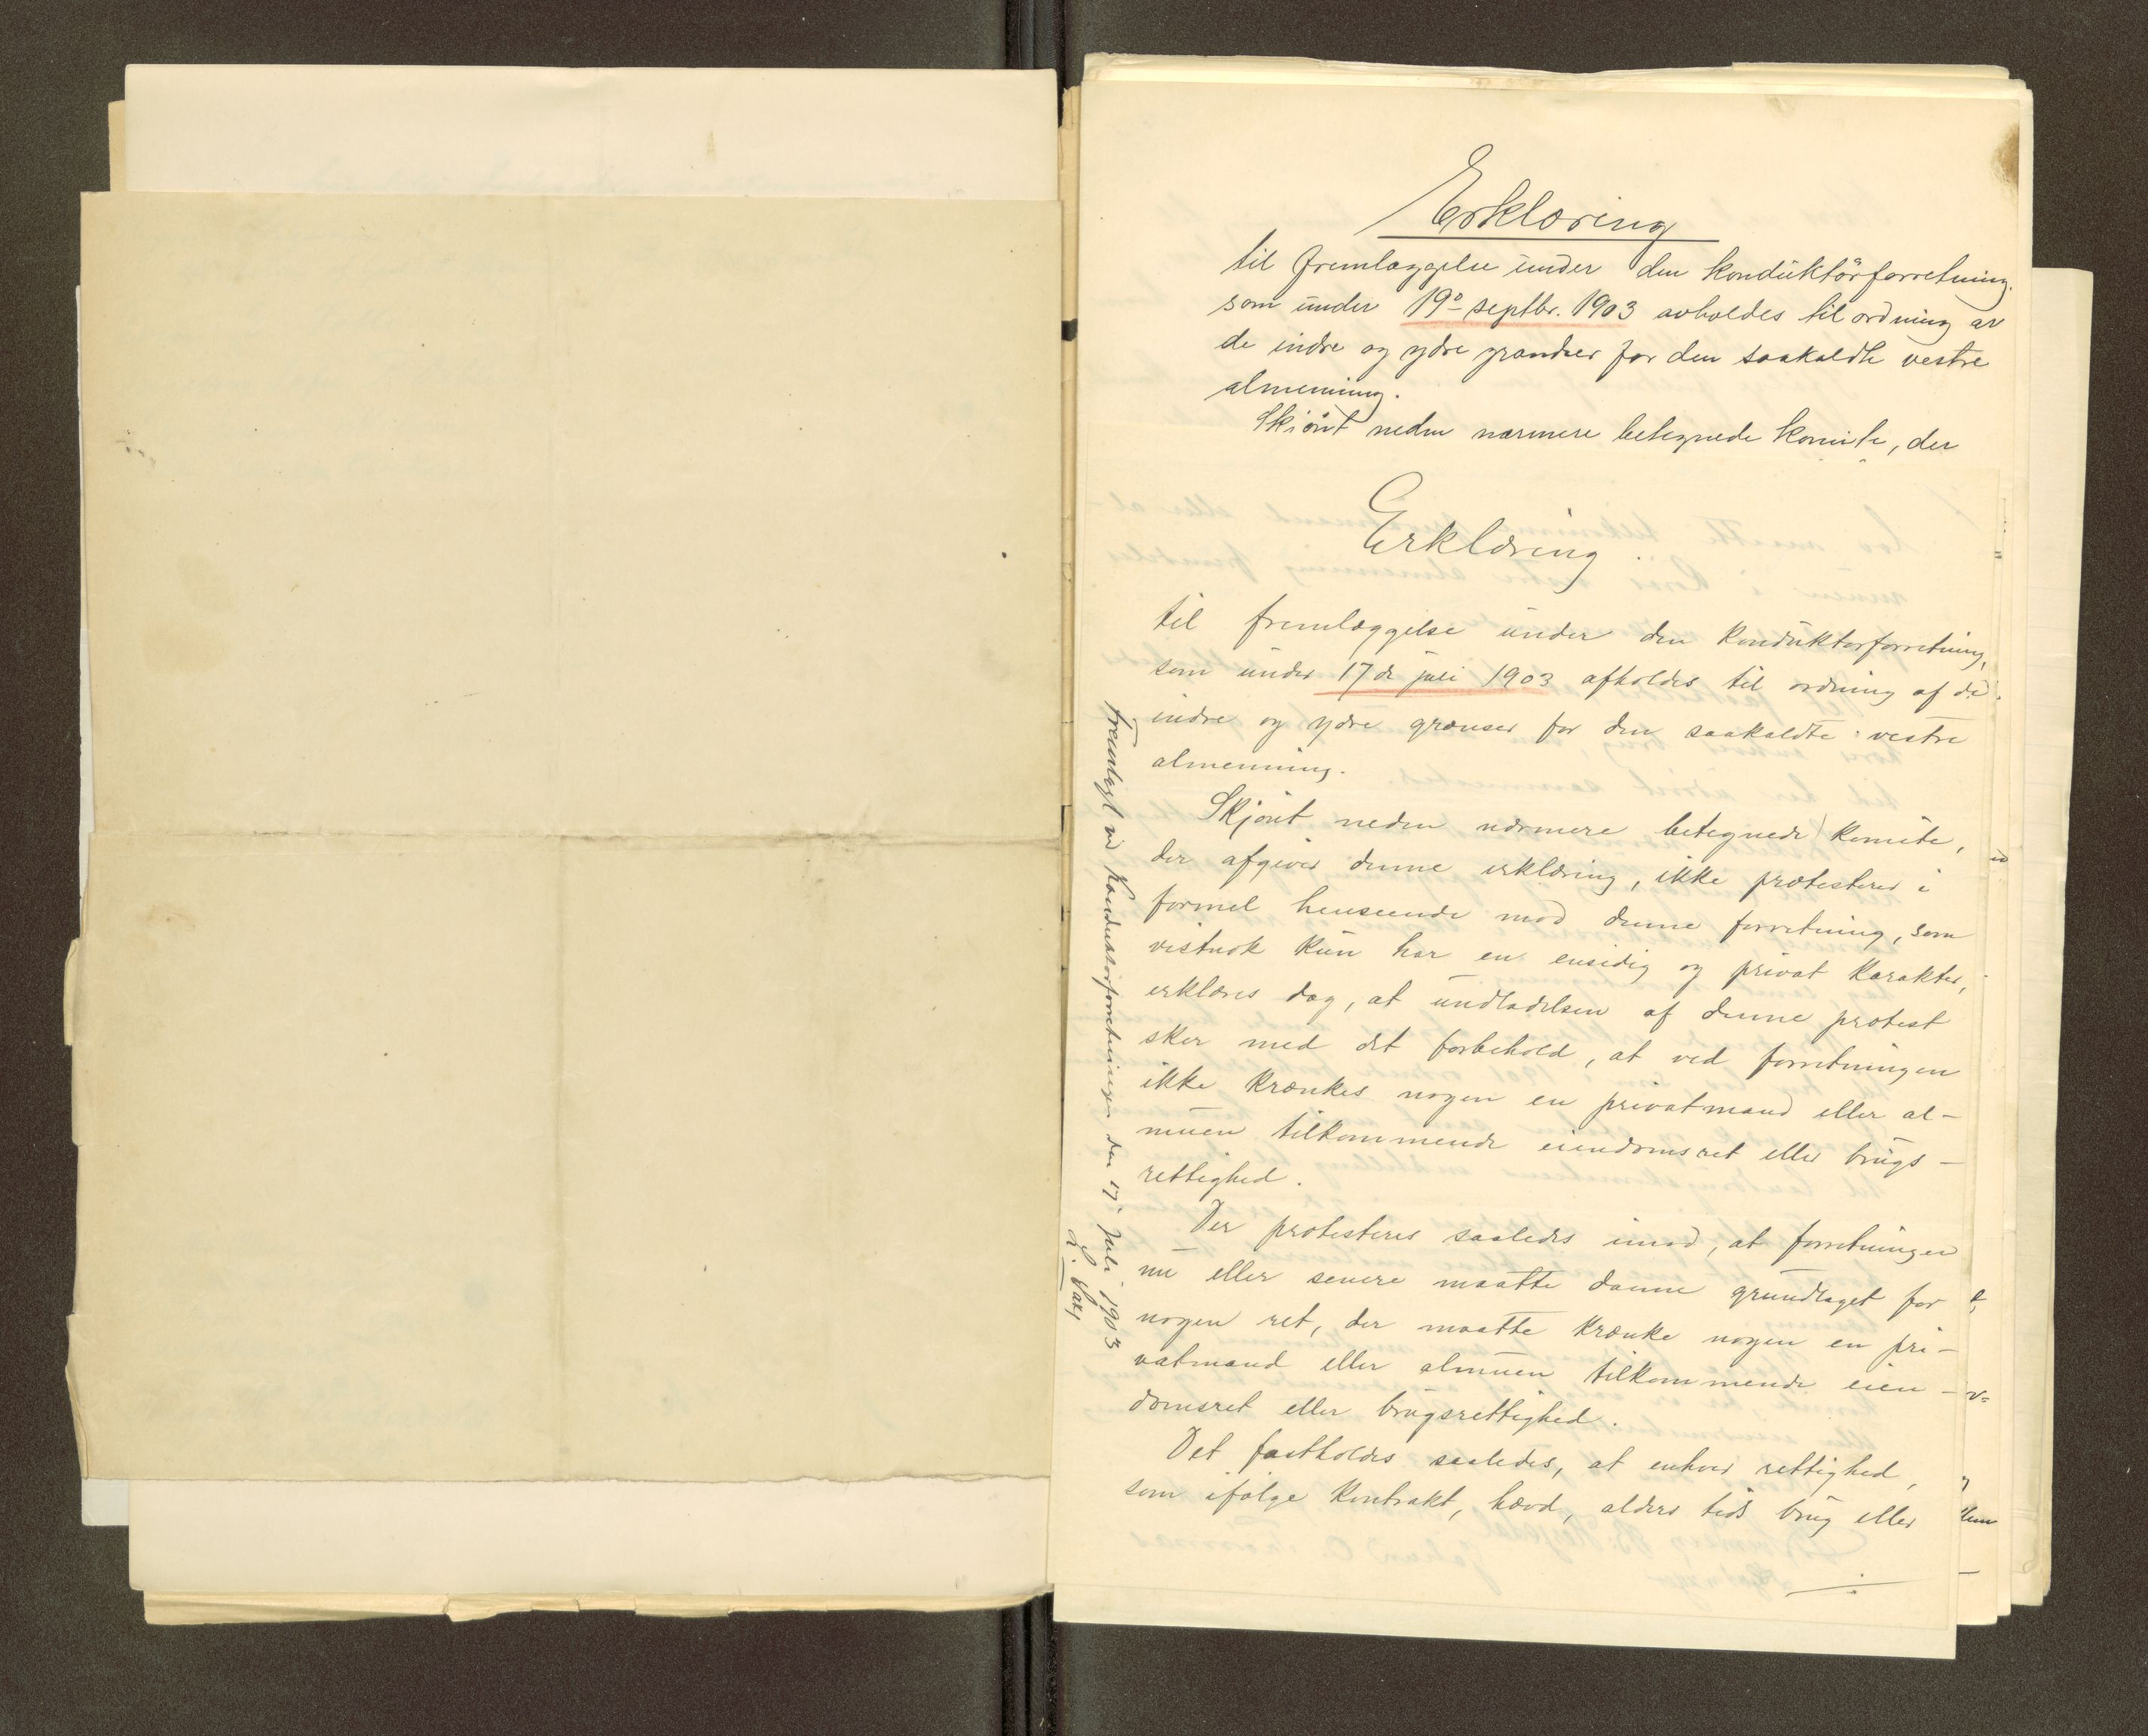 Erklæring
til fremlæggelse under den konduktörforretning.
som under 19º septbr. 1903 avholdes til ordning av
de indre og ydre grændser for den saakaldte vestre
almenning.
Skiönt neden nærmere betegnede komite, der
Erklæring.
til fremlæggelse under den konduktørforretning,
som under 17de juli 1903 afholdes til ordning af de
indre og ydre grænser for den saakaldte vestre
almenning.
Skjønt neden nærmere betegnede komite,
der afgiver denne erklæring, ikke protesterer i
formel henseende mod denne forretning, som
vistnok kun har en ensidig og privat karakter,
erklæres dog, at undladelsen af denne protest
sker med det forbehold, at ved forretningen
ikke krænkes nogen en privatmand eller al-
muen tilkommende eiendomsret eller brugs-
rettighed.
Der protesteres saaledes imod, at forretningen
nu eller senere maatte danne grundlaget for
nogen ret, der maatte krænke nogen en pri-
vatmand eller almuen tilkommende eien-
domsret eller brugsrettighed.
Det fastholdes saaledes, at enhver rettighed,
som ifølge kontrakt, hævd, alders tids brug eller
Fremlagt ved Konduktørforretningen den 17 juli 1903